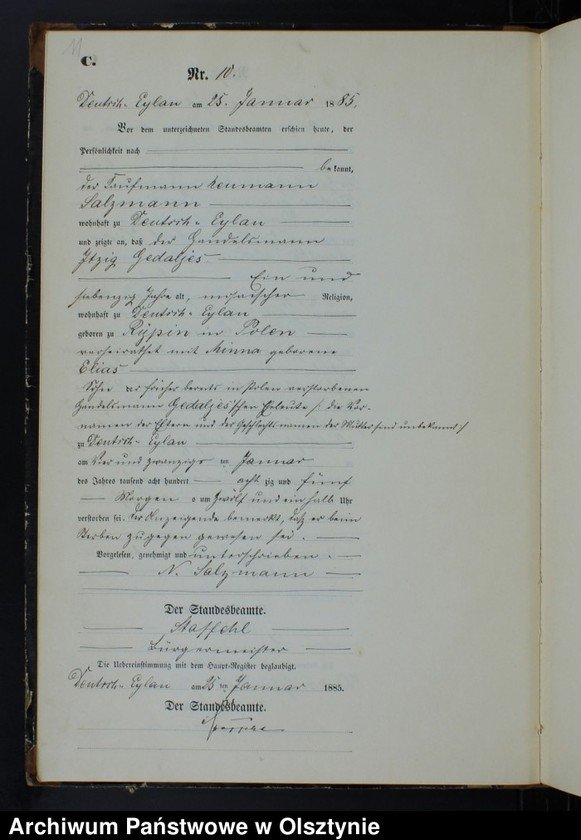 C.
Nr. 10.
Deutsch-Eylau am 25. Januar 1885.
Vor dem unterzeichneten Standesbeamten erschien heute, der
Persönlichkeit nach
bekannt,
der Kaufmann Neumann
Salzmann
wohnhaft zu Deutsch-Eylau
und zeigte an, daß der Handelsmann
Itzig Gedaljes
Ein und
siebenzig Jahre alt, mosaischer Religion,
wohnhaft zu Deutsch-Eylau
geboren zu Rypin in Polen
verheirathet mit Minna geborene
Elias
Sohn der früher bereits in Polen verstorbenen
Handelsmann Gedaljes'schen Eheleute /: die Vor-
namen der Eltern und der Geschlechtsnamen der Mutter sind unbekannt :/
zu Deutsch-Eylau
am vier und zwanzigsten Januar
des Jahres tausend acht hundert achtzig und fünf
Morgens um zwölf und ein halb Uhr
verstorben sei. Der Anzeigende bemerkt, daß er beim
Sterben zugegen gewesen sei.
Vorgelesen, genehmigt und unterschrieben.
N. Salzmann
Der Standesbeamte.
Staffehl
Bürgermeister
Die Uebereinstimmung mit dem Haupt-Register beglaubigt.
Deutsch-Eylau am 25ten Januar 1885.
Der Standesbeamte.
Archiwum Państwowe w Olsztynie